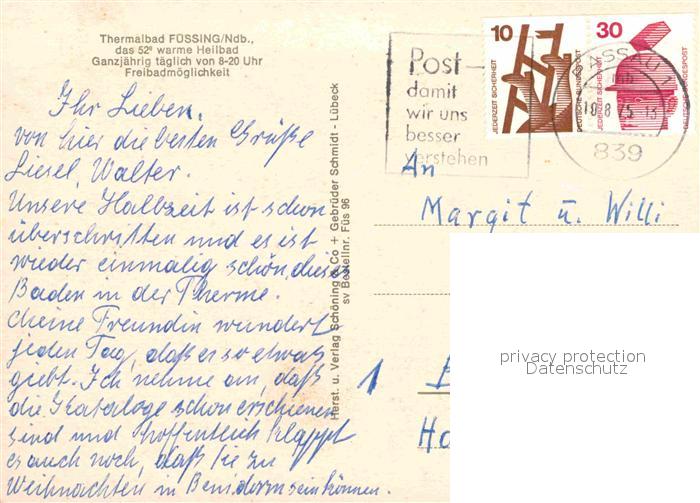 Thermalbad FÜSSING/Ndb.,
das 52° warme Heilbad
Ganzjährig täglich von 8-20 Uhr
Freibadmöglichkeit
Ihr Lieben,
von hier die besten Grüße
Liesel, Walter.
Unsere Halbzeit ist schon
überschritten und es ist
wieder einmalig schön, dieses
Baden in der Therme.
Meine Freundin wundert
jeden Tag, daß es so etwas
giebt. Ich nehme an, daß
die Kataloge schon erschienen
sind und hoffentlich klappt
es auch noch, daß Sie zu
Weihnachten in Benidorm sein können.
Herst. u. Verlag Schöning & Co + Gebrüder Schmidt - Lübeck
sv Bestellnr. Füs 96
Post
damit
wir uns
besser
verstehen
10
JEDERZEIT SICHERHEIT
DEUTSCHE BUNDESPOST
30
JEDERZEIT SICHERHEIT
DEUTSCHE BUNDESPOST
PASSAU 1
8 75
839
An
Margit u. Willi
1
privacy protection
Datenschutz